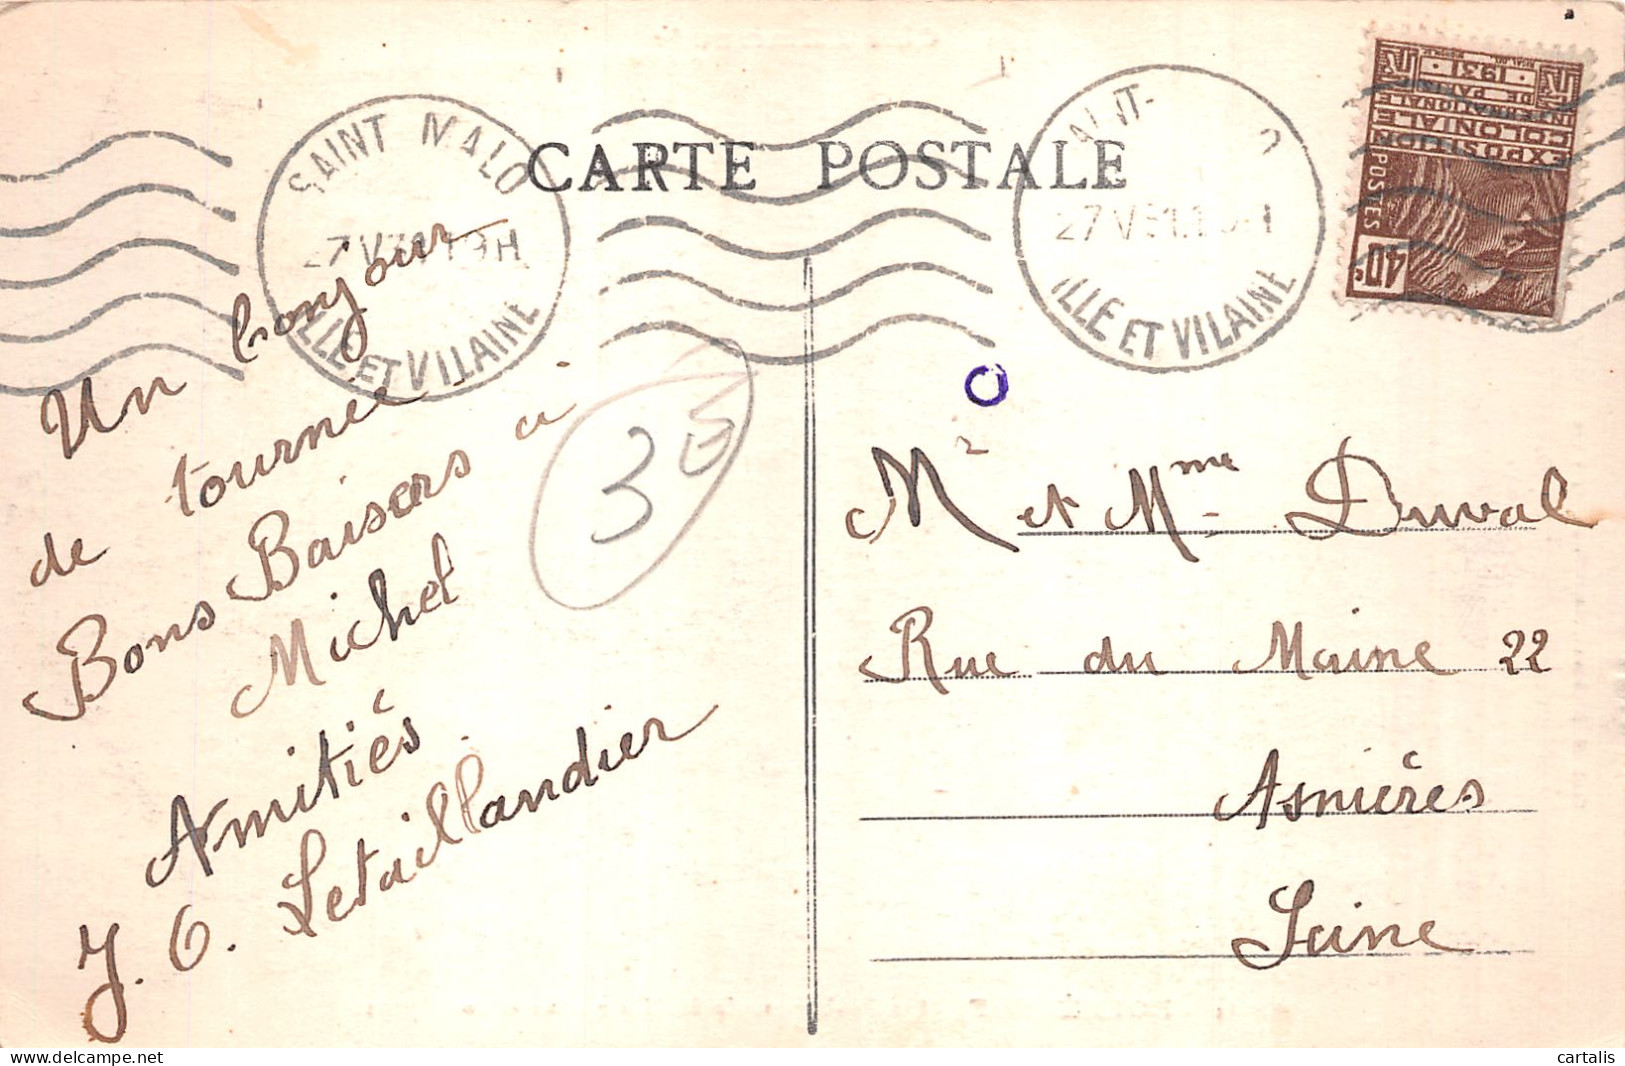 CARTE POSTALE
SAINT MALO
27 V 31 19H
ILLE ET VILAINE
27 V 31 1
ILLE ET VILAINE
EXPOSITION
COLONIALE
INTERNATIONALE
DE PARIS
1931
POSTES
40c
Un bonjour
de tournée
Bons Baisers à
Michel
Amitiés
J. O. Letaillandier
35
Mr et Mme Duval
Rue du Maine 22
Asnières
Seine
cartalis